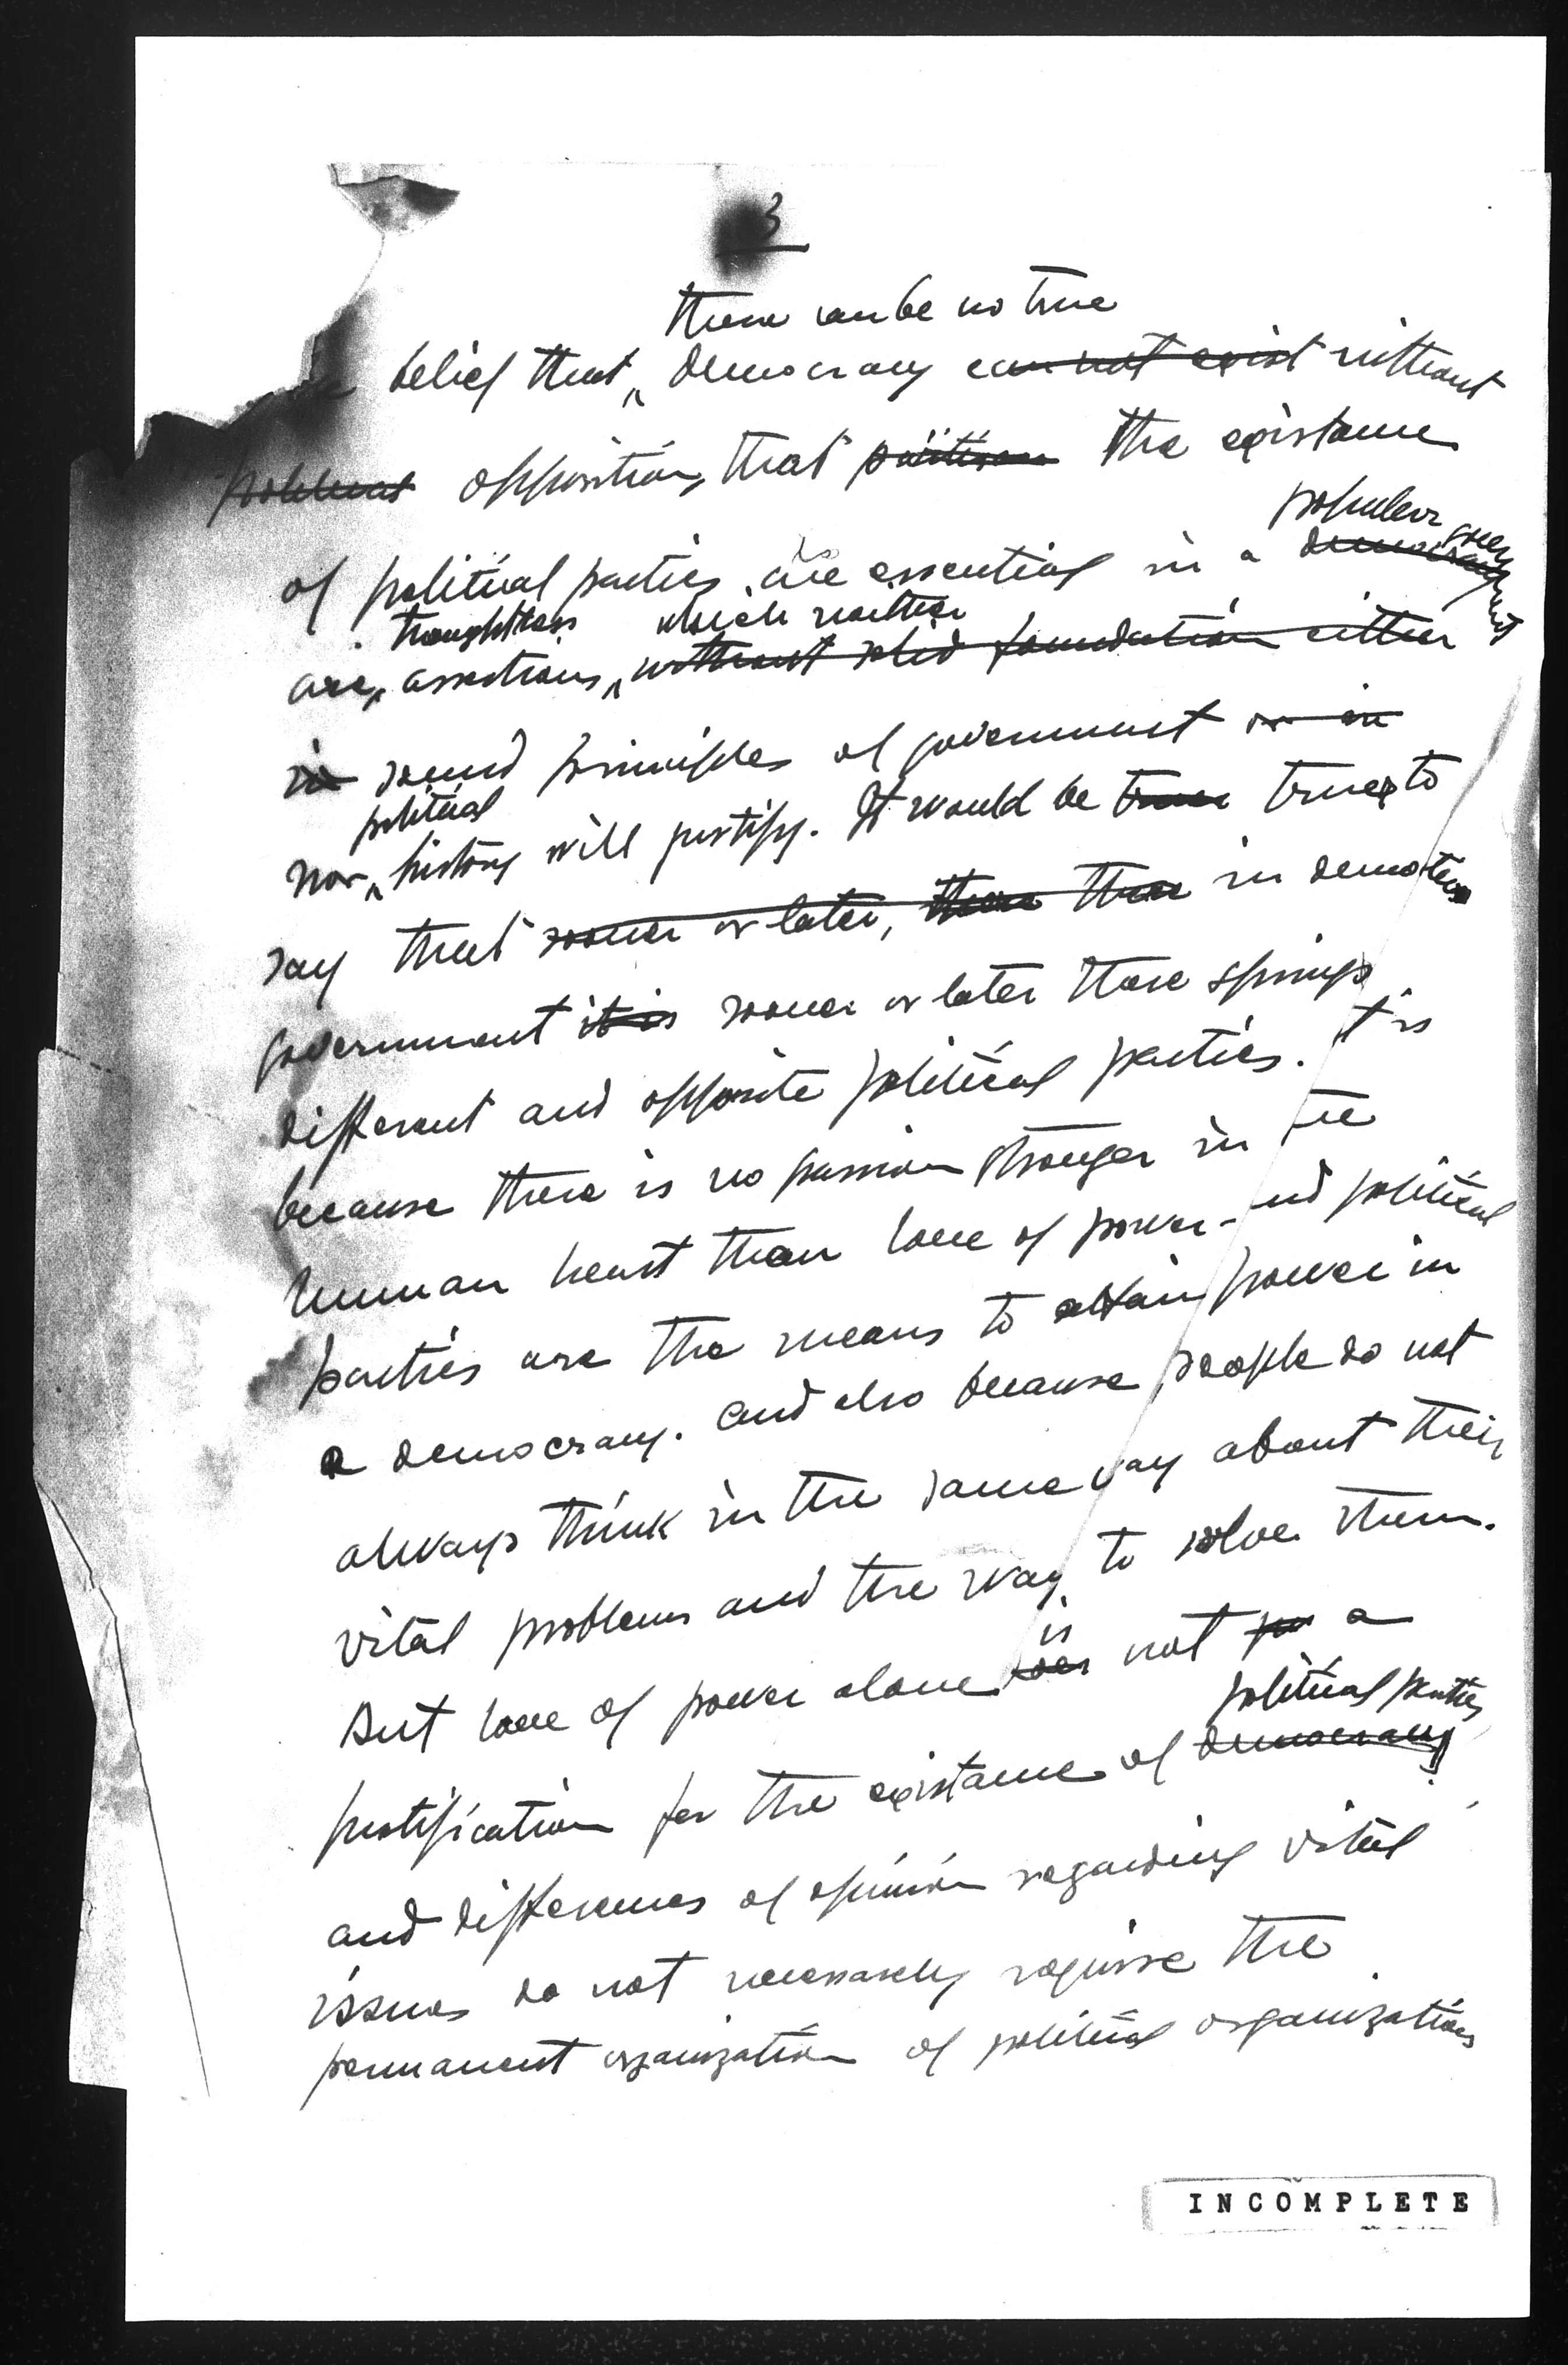 3
there can be no true
belief that democracy can not exist without
opposition, that the existence
popular government
of political parties is essential in a democracy
thoughtless which neither
are assertions, without solid foundation either
in sound principles of government or in
political
nor history will justify. It would be truer to
say that sooner or later, there in democratic
government it is sooner or later there springs
different and opposite political parties. It is
because there is no passion stronger in the
human heart than love of power - and political
parties are the means to attain power in
a democracy. And also because people do not
always think in the same way about their
vital problems and the way to solve them.
is
But love of power alone does not a
political parties
justification for the existance of democracy
and differences of opinion regarding vital
issues do not necessarely require the
permanent organization of political organizations
INCOMPLETE